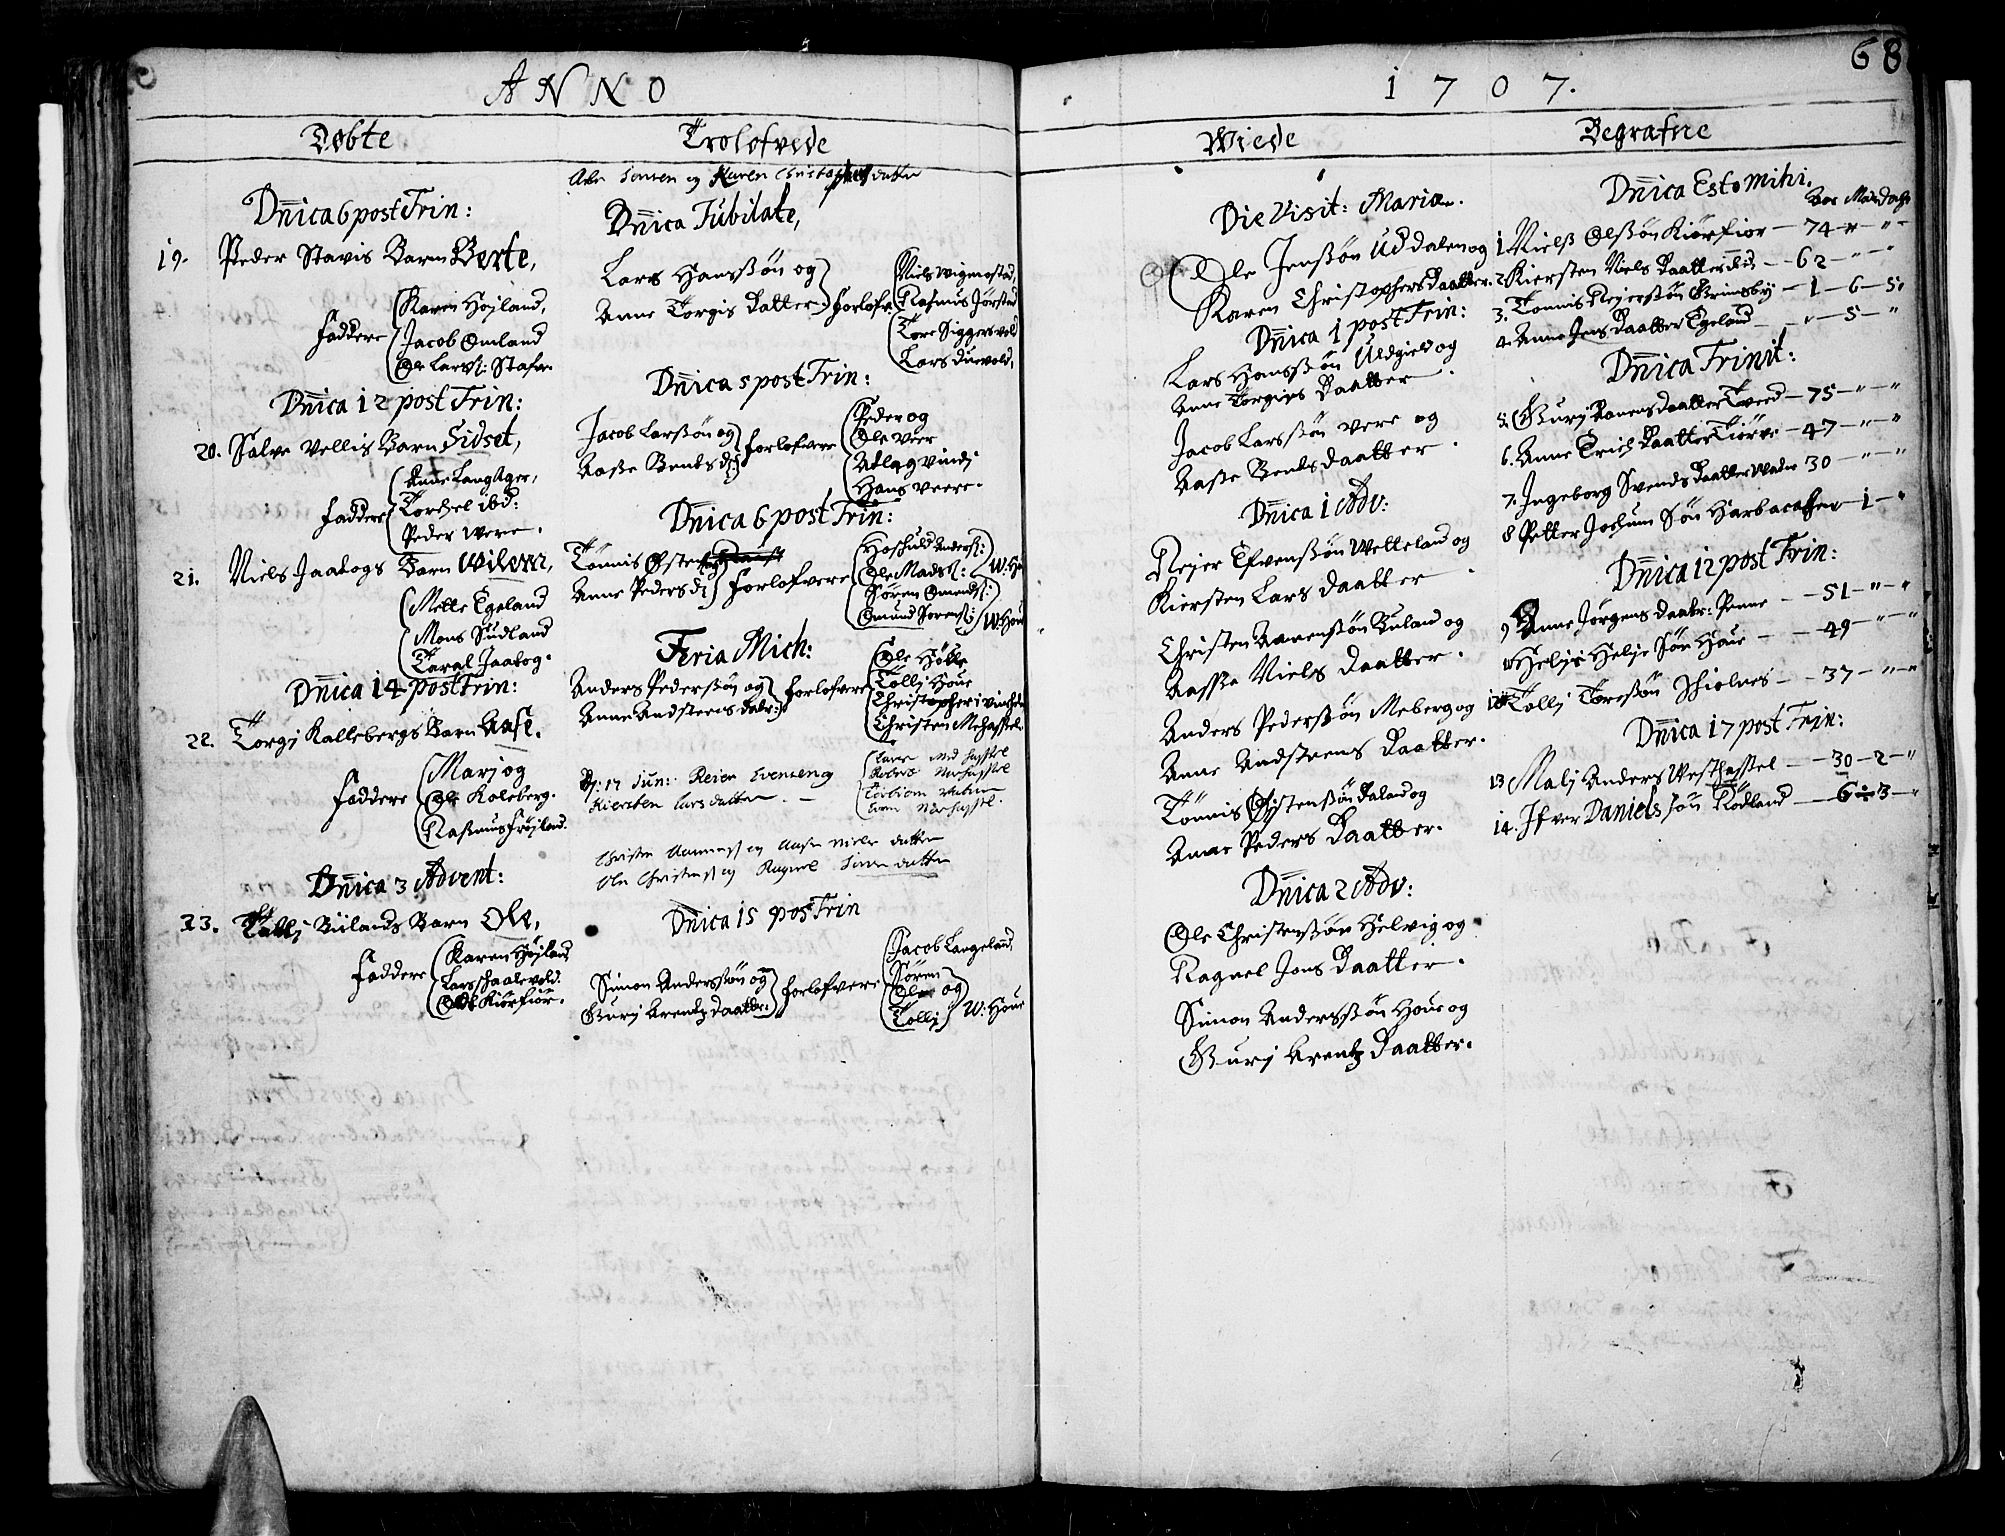 ANNO
Døbte
Dnica 6 post Trin:
19. Peder Stavis Barn Berte,
Faddere
Karen Højland,
Jacob Omland
Ole Larss: Stafn.
Dnica 12 post Trin:
20. Salve Vellis Barn Sidset,
Faddere
Aade LangAger,
Torchel ibd:
Peder Were.
21. Niels Jaabogs Barn Willem,
Mette Egeland
Mons Sudland
Taral Jaabog.
Dnica 14 post Trin:
22. Torgj Kallebergs Barn Aase.
Faddere
Marj og
Ole Koleberg.
Rasmus Frøjland.
Dnica 3 Advent:
23. Tollj Biilands Barn Ole,
Faddere
Karen Højland
Lars schaalevold.
Oluf Kiørfior.
Trolofvede
Ole Jensen og Karen Christophersdatter
Dnica Jubilate,
Lars Hansßøn og
Anne Torgis Datter
Forlofv.
Niels Wigmostad,
Rasmus Jørstad
Tore Siggersvold
Lars Duevold,
Dnica 5 post Trin:
Jacob Larsßøn og
Aaße Bentsd:
Forlofvere
Peder og
Ole Veer
Atlag Vindj
Hans Veere.
Dnica 6 post Trin:
Tønnis Østens: og
Anne Pedersd:
Forlofvere
Hoschuld Anders:
Ole Madss:
W: Ho
Søren Omunds:
Omund Sørens:
W: Houe
Feria Mich:
Anders Pedersßøn og
Anne Andsteens Datr:
Forlofvere
Ole Hølle
Tollj Houe
Christopher i Vinchelen
Christen Mehassel.
D: 17 Jun: Reier Evensen og
Kiersten Larsdatter. —
Christen Aanens: og Aase Niels datter
Ole Christens: og Raguel Joens datter
Dnica 15 post Trin
Simon Andersßøn og
Gurj Arentz Daatter.
Forlofvere
Jacob Langeland,
Søren
Ole og
Tollj
W: Houe
68
1707.
Wiede
Die Visit: Mariæ.
Ole Jensßøn Uddalen og
Karen Christophersdaatter.
Dnica 1 post Trin:
Lars Hansßøn Uldgield og
Anne Torgiøs Daatter.
Jacob Larsßøn Vere og
Aaße Bentsdaatter.
Dnica 1 Adv:
Rejer Efvensßøn Wetteland og
Kiersten Lars daatter
Christen Aanensßøn Buland og
Aasße Niels Daatter.
Anders Pedersßøn Meberg og
Anne Andsteens Daatter.
Tønnis Østensßøn Daland og
Anne Peders Daatter.
Dnica 2 Adv:
Ole Christensßøn Helvig og
Raguel Jons Daatter.
Simon Andersßøn Houe og
Gurj Arentz Daatter.
Begrafne
Dnica Esto mihi,
Aar Maan dage
1 Nielß Olsßøn Kiørfior — 74 — " — "
2 Kiersten Niels Daatter ibid: — 62 — " — "
3. Tønnis Rejersßøn Grimsbÿ — 1 — 6 — 5"
4. Anne Jens Daatter Egeland — " — 5 — "
Dnica Trinit:
5. Gurj Banens daatter Tveed — 75 — " — "
6. Anne Erich Daatter Tiørve — 47 — " — "
7. Ingeborg Svends Daatter Watne 30 — " — "
8 Petter Jochum Søn Harbacaßen — 1 — "
Dnica 12 post Trin:
9 Anne Jørgens daatr: Penne — 51 — " — "
10 Helje Helje Søn Houe — 49 — " — "
Tollj Toresßøn Schiolnes — 37 — " — "
Dnica 17 post Trin:
13 Malj Anders Westhassel — 30 — 2 — "
14. Ifver Daniels søn Rødland — 6 — 3 — "